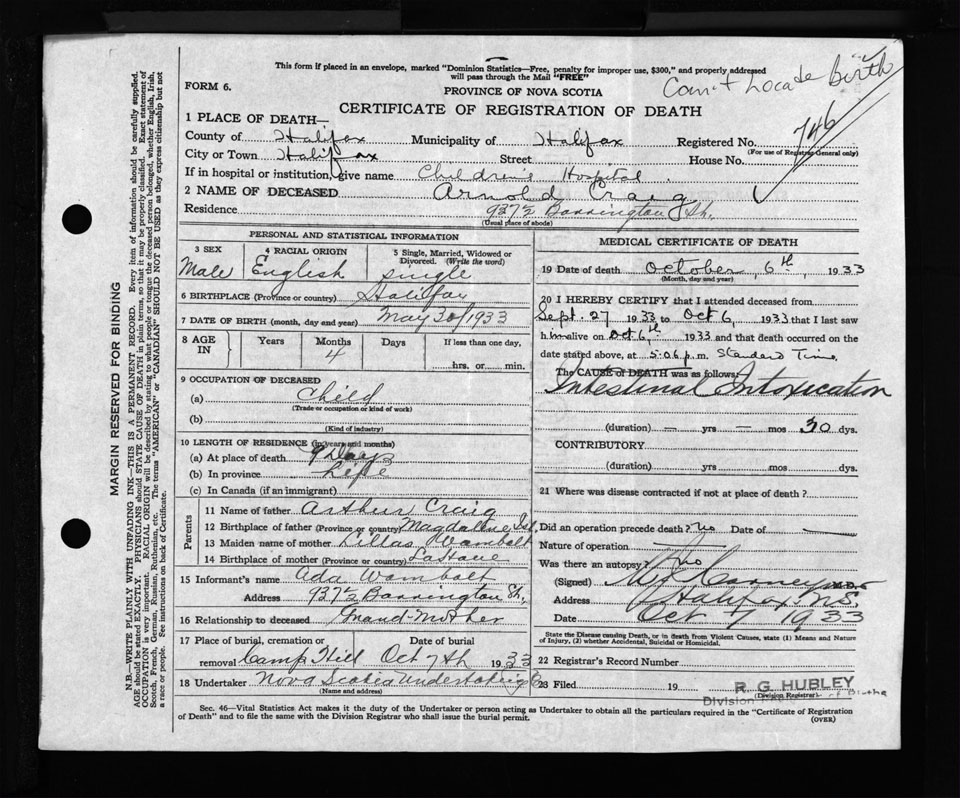 This form if placed in an envelope, marked "Dominion Statistics—Free, penalty for improper use, $300," and properly addressed
will pass through the Mail "FREE"
Can't Locate Birth
FORM 6.
PROVINCE OF NOVA SCOTIA
CERTIFICATE OF REGISTRATION OF DEATH
1 PLACE OF DEATH—
County of Halifax Municipality of Halifax Registered No. 746
(For use of Registrar General only)
City or Town Halifax Street House No.
If in hospital or institution, give name Children's Hospital
2 NAME OF DECEASED Arnold Craig
Residence 937½ Barrington St.
(Usual place of abode)
PERSONAL AND STATISTICAL INFORMATION
3 SEX 4 RACIAL ORIGIN 5 Single, Married, Widowed or Divorced. (Write the word)
Male English single
6 BIRTHPLACE (Province or country) Halifax
7 DATE OF BIRTH (month, day and year) May 30/1933
8 AGE IN Years Months Days If less than one day,
4 hrs. or min.
9 OCCUPATION OF DECEASED
(a) Child
(Trade or occupation or kind of work)
(b)
(Kind of industry)
10 LENGTH OF RESIDENCE (in years and months)
(a) At place of death 9 Days
(b) In province Life
(c) In Canada (if an immigrant)
Parents
11 Name of father Arthur Craig
12 Birthplace of father (Province or country) Magdallene Isl.
13 Maiden name of mother Lillas Wambolt
14 Birthplace of mother (Province or country) LaHave
15 Informant's name Ada Wambolt
Address 937½ Barrington St.
16 Relationship to deceased Grand-Mother
17 Place of burial, cremation or removal Camp Hill Date of burial Oct 7th 1933
18 Undertaker Nova Scotia Undertaking Co
(Name and address)
MEDICAL CERTIFICATE OF DEATH
19 Date of death October 6th, 1933
(Month, day and year)
20 I HEREBY CERTIFY that I attended deceased from
Sept. 27 1933 to Oct 6, 1933 that I last saw
him alive on Oct 6th 1933 and that death occurred on the
date stated above, at 5:06 p.m. Standard Time
The CAUSE OF DEATH was as follows:
Intestinal Intoxication
(duration) — yrs — mos 30 dys.
CONTRIBUTORY
(duration) yrs mos dys.
21 Where was disease contracted if not at place of death?
Did an operation precede death? no Date of —
Nature of operation —
Was there an autopsy? no
(Signed) Carney M.D.
Address Halifax, N.S.
Date Oct 7 1933
State the Disease causing Death, or in death from Violent Causes, state (1) Means and Nature of Injury, (2) whether Accidental, Suicidal or Homicidal.
22 Registrar's Record Number
23 Filed 19 R. G. HUBLEY
(Division Registrar)
Division
Sec. 46—Vital Statistics Act makes it the duty of the Undertaker or person acting as Undertaker to obtain all the particulars required in the "Certificate of Registration
of Death" and to file the same with the Division Registrar who shall issue the burial permit.
(OVER)
MARGIN RESERVED FOR BINDING
N.B.—WRITE PLAINLY WITH UNFADING INK—THIS IS A PERMANENT RECORD. Every item of information should be carefully supplied.
AGE should be stated EXACTLY. PHYSICIANS should STATE CAUSE OF DEATH in plain terms, so that it may be properly classified. Exact statement of
OCCUPATION is very important. RACIAL ORIGIN will be described by stating to what people or tongue the deceased person belonged, whether English, Irish,
Scotch, French, German, Russian, Ruthenian, etc. The terms "AMERICAN" or "CANADIAN" SHOULD NOT BE USED as they express citizenship but not
a race or people. See instructions on back of Certificate.